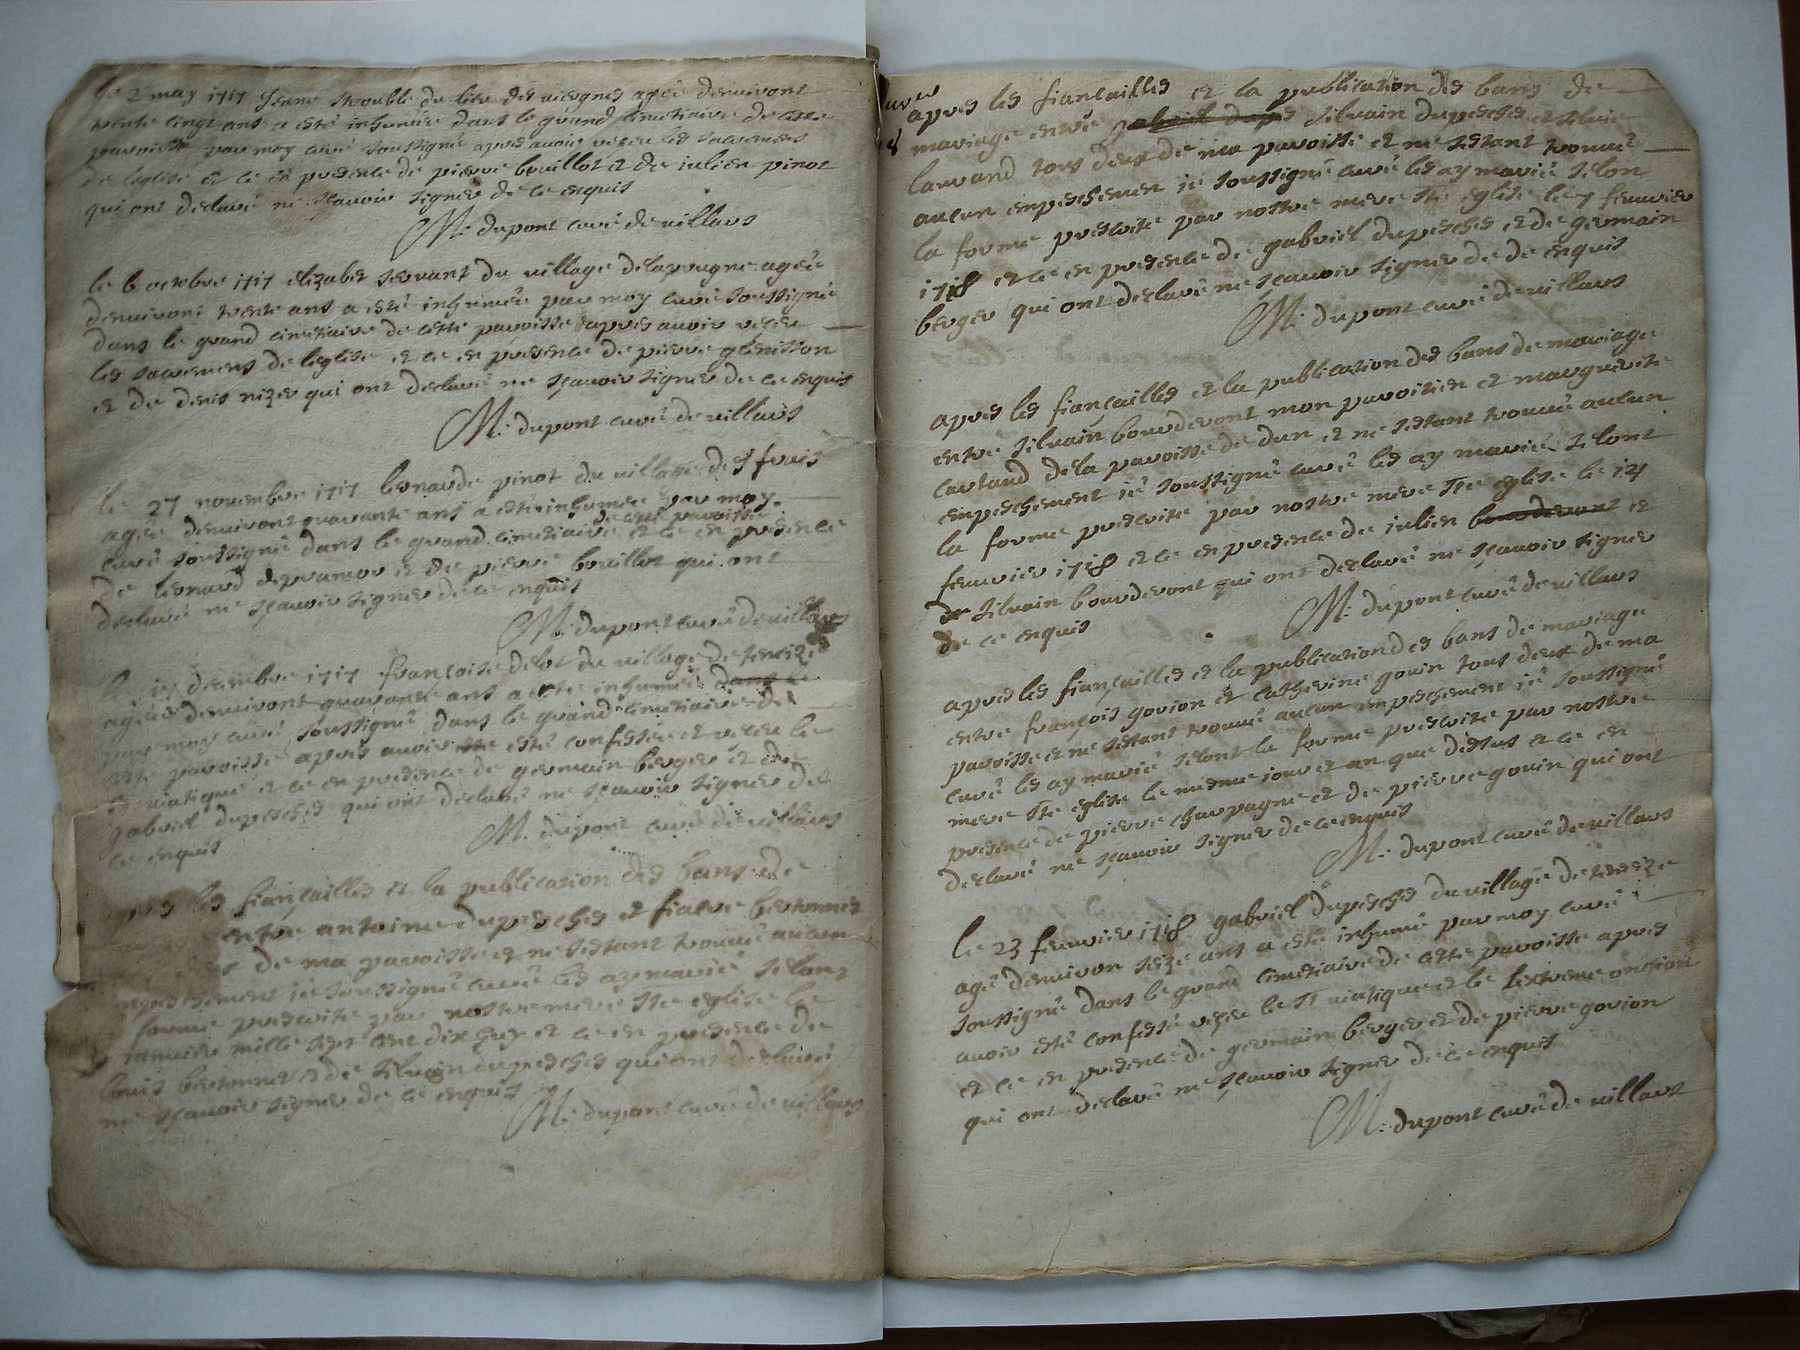 Le 2 may 1717 Jeane trouble du lieu des viergnes agée denuiront
trente cinqt ans a esté inhumée dans le grand cimetiaire de cette
paroisse par moy curé soussigné apres auoir receu les sacremens
de leglise et ce en presence de pierre bouillot et de iulien pinot
qui ont declaré ne sçauoir signer de ce enquis
M: dupont curé de villars
le 6 octobre 1717 elizabet seruant du village delapougne agée
denuiront trente ans a esté inhumée par moy curé soussigné
dans le grand cimetiaire de cette paroisse apres auoir receu
les sacremens de leglise et ce en presence de pierre glenisson
et de denis nizer qui ont declaré ne sçauoir signer de ce enquis
M: dupont curé de villars
le 27 nouembre 1717 bernarde pinot du village des frais
agée denuiront quarante ans a esté inhumée par moy
de cette paroisse
curé soussigné dans le grand cimetiaire et ce en presence
de bernard depramor et de pierre bouillot qui ont
declaré ne sçauoir signer de ce enquis
M: dupont curé de villars
decembre 1717 françoise delot du village de tereize
agée denuiront quarante ans a este inhumée dans le
par moy curé soussigné dans le grand cimetiaire de
cette paroisse apres auoir esté confessée et receu le
st viatique et ce en presence de germain berger et de
gabriel dupesches qui ont declaré ne sçauoir signer de
ce enquis
M: dupont curé de villars
apres les fiançailles et la publication des bans de
entre antoine dupesches et fiacre bertonnet
deux de ma paroisse et ne sestant trouué aucun
empeschement ié soussigné curé les ay marié selont
forme prescrite par nostre mere ste eglise le
ianuier mille sept cent dix huy et ce en presence de
louis bertonnet et de siluain dupesches qui ont declaré
ne sçauoir signer de ce enquis
M: dupont curé de villars
apres les fiançailles et la publication des bans de
mariage entre gabriel dupes siluain dupesches et siluie
laurand tous deux de ma paroisse et ne sestant trouué
aucun empeschement ié soussigné curé les ay marié selon
la forme prescrite par nostre mere ste eglise le 7 feurier
1718 et ce en presence de gabriel dupesches et de germain
berger qui ont declaré ne sçauoir signer de ce enquis
M: dupont curé de villars
apres les fiançailles et la publication des bans de mariage
entre siluain bourderont mon paroitien et marguerite
cartaud dela paroisse de dun et ne sestant trouué aucun
empeschement ié soussigné curé les ay marié selont
la forme prescrite par nostre mere ste eglise le 14
feurier 1718 et ce en presence de iulien bourderont et
de siluain bourderont qui ont declaré ne sçauoir signer
de ce enquis
M: dupont curé de villars
apres les fiançailles et la publication des bans de mariage
entre françois gorion et catherine gouin tous deux de ma
paroisse et ne sestant trouué aucun empeschement ié soussigné
curé les ay marié selont la forme prescrite par nostre
mere ste eglise le mesme iour et an que dessus et ce en
presence de pierre champagne et de pierre gouin qui ont
declaré ne sçauoir signer de ce enquis
M: dupont curé de villars
le 23 feurier 1718 gabriel dupesches du village de tereize
agé denuiron seize ans a esté inhumé par moy curé
soussigné dans le grand cimetiaire de cette paroisse apres
auoir esté confessé receu le st viatique et le lextreme onction
et ce en presence de germain berger et de pierre gorion
qui ont declaré ne sçauoir signer de ce enquis
M: dupont curé de villars